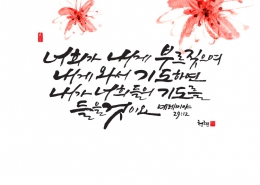 너희가 내게 부르짖으며
내게 와서 기도하면
내가 너희들의 기도를
들을 것이요 예레미야
29:12